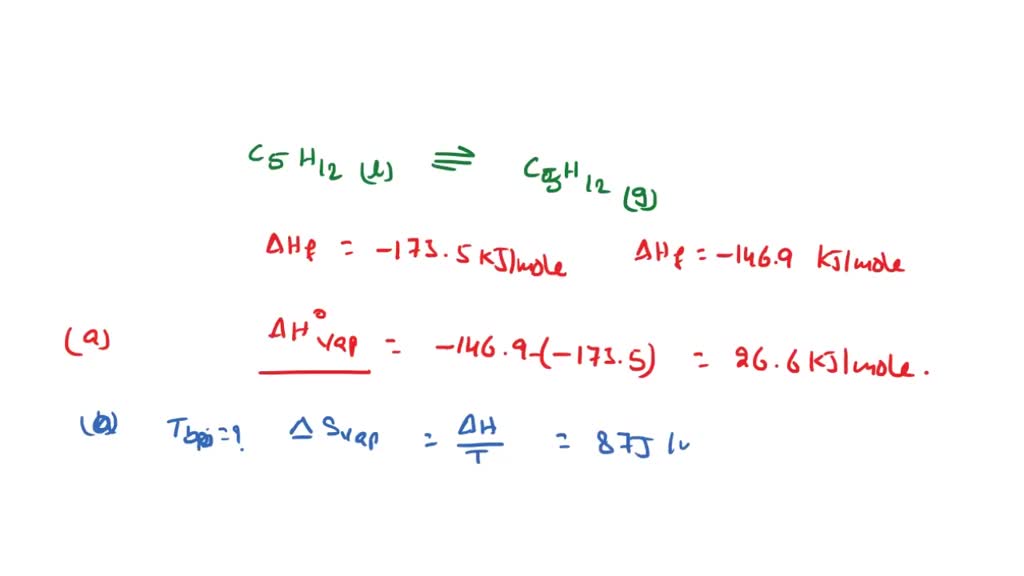 C5H12 (l) ⇌ C5H12 (g)
ΔHf = -173.5 KJ/mole ΔHf = -146.9 KJ/mole
(a) ΔH°vap = -146.9-(-173.5) = 26.6 KJ/mole.
(b) Tbp=? ΔSvap = ΔH/T = 87J